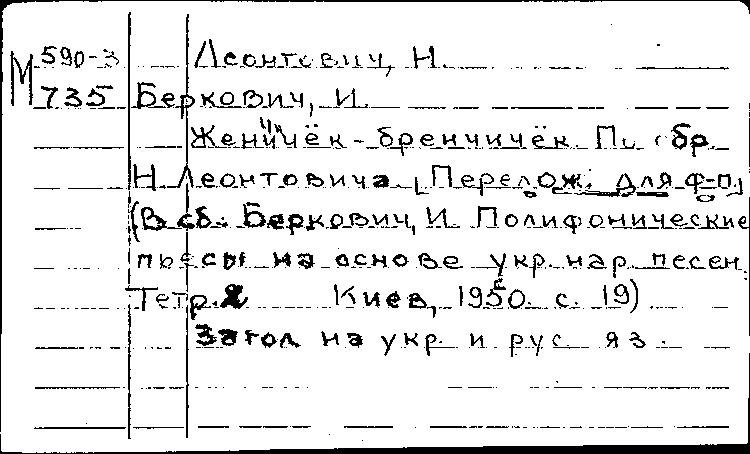 М 590-3 Леонтович, Н.
735 Беркович, И.
Женичёк-бренчичёк. По обр.
Н Леонтовича [Перелож. для ф-п.]
(В сб.: Беркович, И Полифонические
пьесы на основе укр. нар. песен.
Тетр. 2 Киев, 1950. с. 19)
Загол на укр. и рус яз.